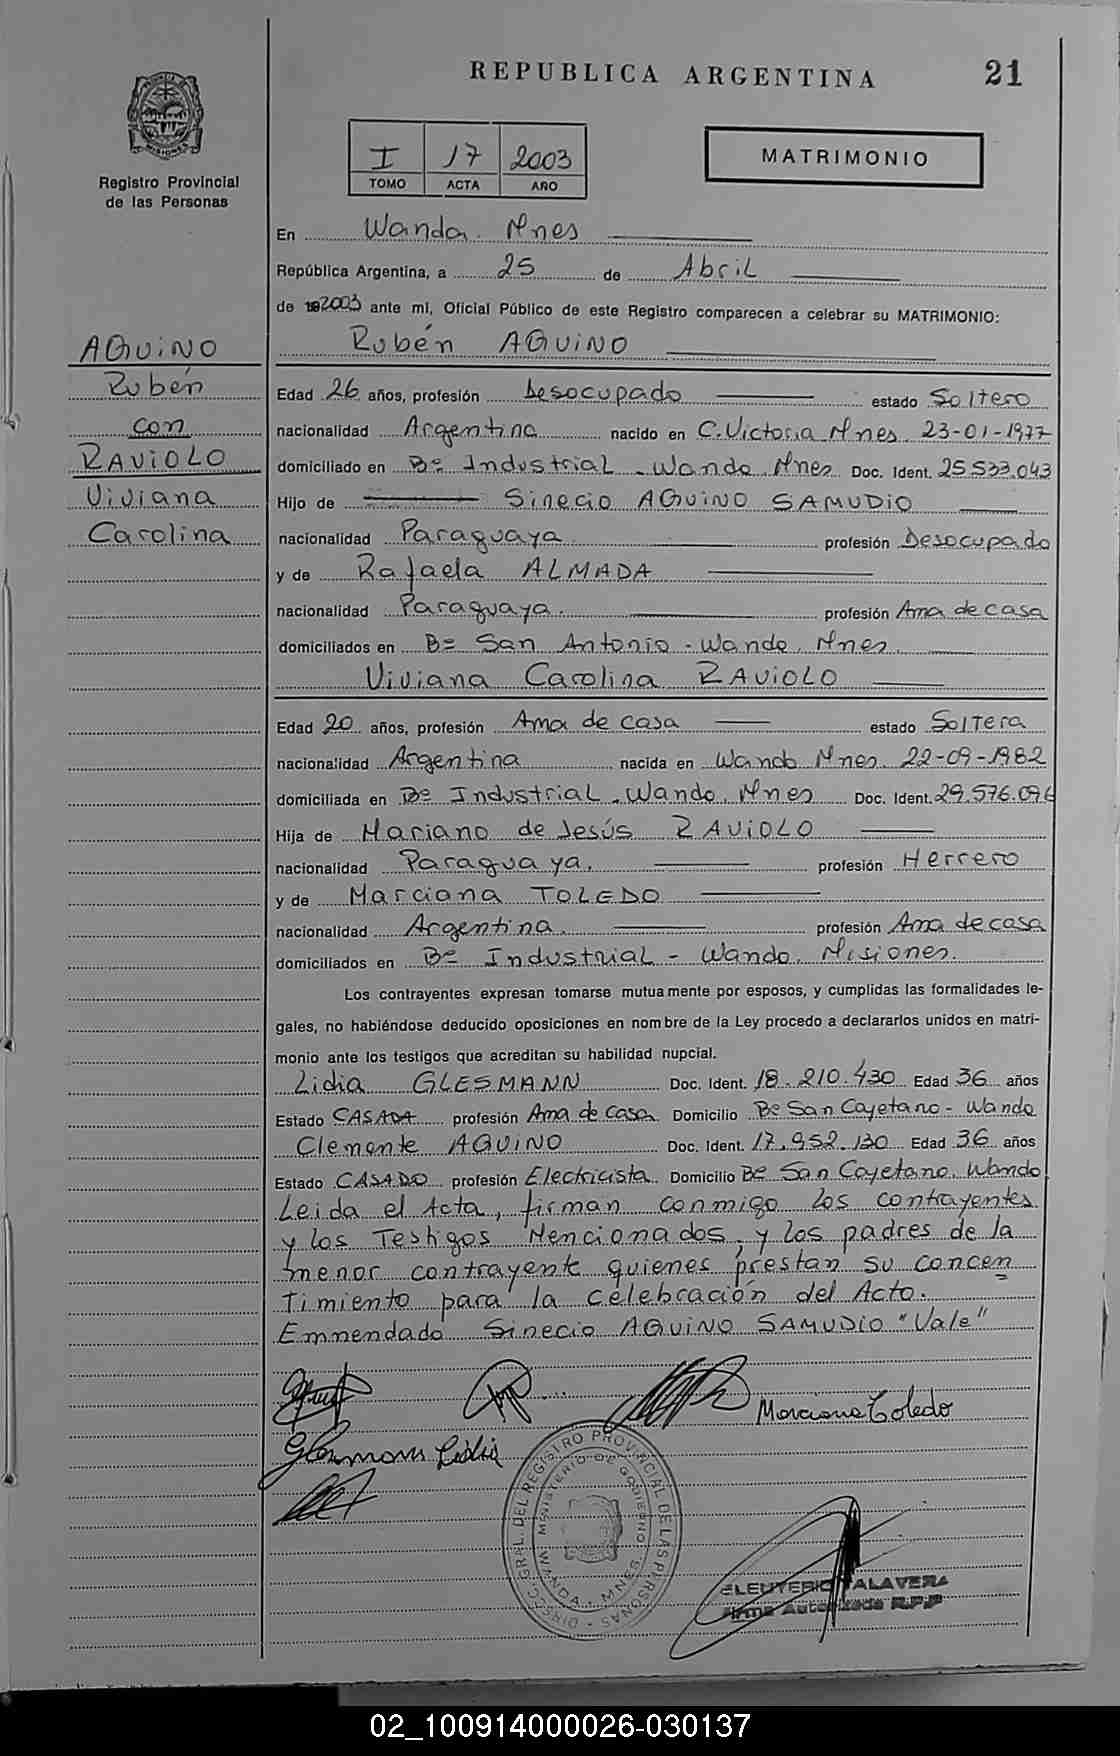 REPUBLICA ARGENTINA
21
MISIONES
Registro Provincial
de las Personas
I 17 2003
TOMO ACTA AÑO
MATRIMONIO
En Wanda. Mnes
República Argentina, a 25 de Abril
de 2003 ante mi, Oficial Público de este Registro comparecen a celebrar su MATRIMONIO:
Rubén AQUINO
AQUINO
Rubén
con
RAVIOLO
Viviana
Carolina
Edad 26 años, profesión Desocupado estado Soltero
nacionalidad Argentina nacido en C. Victoria Mnes. 23-01-1977
domiciliado en Bº Industrial - Wanda. Mnes Doc. Ident. 25.533.043
Hijo de Sinecio AQUINO SAMUDIO
nacionalidad Paraguaya profesión Desocupado
y de Rafaela ALMADA
nacionalidad Paraguaya. profesión Ama de casa
domiciliados en Bº San Antonio - Wanda. Mnes.
Viviana Carolina RAVIOLO
Edad 20 años, profesión Ama de casa estado Soltera
nacionalidad Argentina nacida en Wanda Mnes. 22-09-1982
domiciliada en Bº Industrial - Wanda. Mnes Doc. Ident. 29.576.096
Hija de Mariano de Jesús RAVIOLO
nacionalidad Paraguaya. profesión Herrero
y de Marciana TOLEDO
nacionalidad Argentina. profesión Ama de casa
domiciliados en Bº Industrial - Wanda. Misiones.
Los contrayentes expresan tomarse mutuamente por esposos, y cumplidas las formalidades le-
gales, no habiéndose deducido oposiciones en nombre de la Ley procedo a declararlos unidos en matri-
monio ante los testigos que acreditan su habilidad nupcial.
Lidia GLESMANN Doc. Ident. 18.210.430 Edad 36 años
Estado CASADA profesión Ama de Casa Domicilio Bº San Cayetano - Wanda
Clemente AQUINO Doc. Ident. 17.952.130 Edad 36 años
Estado CASADO profesión Electricista Domicilio Bº San Cayetano. Wanda
Leida el Acta, firman conmigo los contrayentes
y los Testigos Mencionados, y los padres de la
menor contrayente quienes prestan su concen
timiento para la celebración del Acto.
Emnendado Sinecio AQUINO SAMUDIO "Vale"
Marciana Toledo
Glesmann Lidia
DIREC. GRAL. DEL REGISTRO PROVINCIAL DE LAS PERSONAS
MINISTERIO DE GOBIERNO
WANDA - MNES.
ELEUTERIO TALAVERA
Firma Autorizada R.P.P
02_100914000026-030137